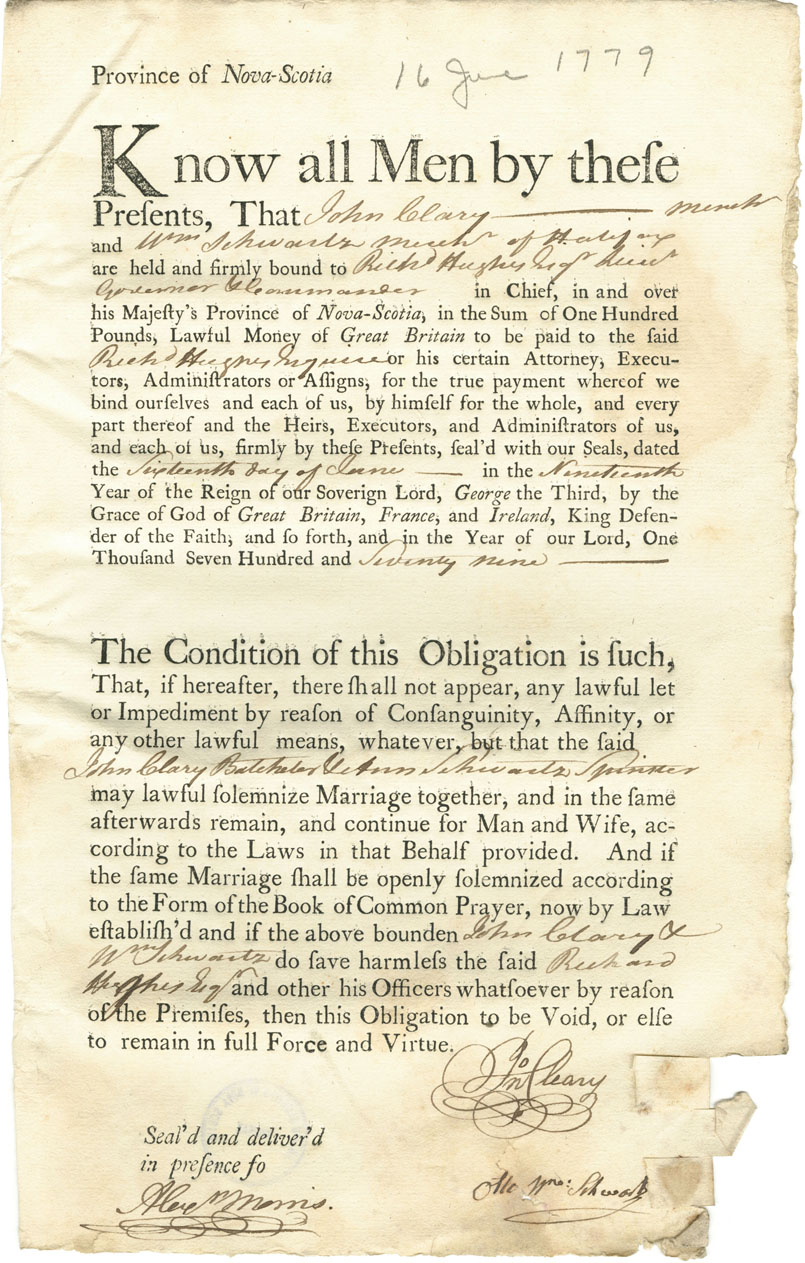 Province of Nova-Scotia 16 June 1779
Know all Men by theſe
Preſents, That John Clary merch.t
and Wm Schwartz merch.t of Halifax
are held and firmly bound to Rich.d Hughes Esq.r Lieu.t
Governor & Commander in Chief, in and over
his Majeſty's Province of Nova-Scotia, in the Sum of One Hundred
Pounds, Lawful Money of Great Britain to be paid to the ſaid
Rich.d Hughes Esquire or his certain Attorney, Execu-
tors, Adminiſtrators or Aſſigns, for the true payment whereof we
bind ourſelves and each of us, by himſelf for the whole, and every
part thereof and the Heirs, Executors, and Adminiſtrators of us,
and each of us, firmly by theſe Preſents, ſeal'd with our Seals, dated
the Sixteenth day of June in the Nineteenth
Year of the Reign of our Soverign Lord, George the Third, by the
Grace of God of Great Britain, France, and Ireland, King Defen-
der of the Faith, and ſo forth, and in the Year of our Lord, One
Thouſand Seven Hundred and Seventy nine
The Condition of this Obligation is ſuch,
That, if hereafter, there ſhall not appear, any lawful let
or Impediment by reaſon of Conſanguinity, Affinity, or
any other lawful means, whatever, but that the ſaid
John Clary Batcheler & Ann Schwartz Spinster
may lawful ſolemnize Marriage together, and in the ſame
afterwards remain, and continue for Man and Wife, ac-
cording to the Laws in that Behalf provided. And if
the ſame Marriage ſhall be openly ſolemnized according
to the Form of the Book of Common Prayer, now by Law
eſtabliſh'd and if the above bounden John Clary &
Wm Schwartz do ſave harmleſs the ſaid Richard
Hughes Esq.r and other his Officers whatſoever by reaſon
of the Premiſes, then this Obligation to be Void, or elſe
to remain in full Force and Virtue.
Jno Cleary
Seal'd and deliver'd
in preſence fo
Alex.r Morris.
Otto Wm: Schwartz